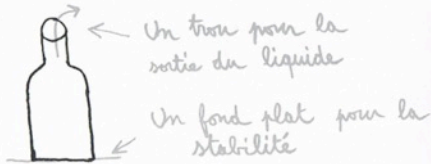 Un trou pour la
sortie du liquide
Un fond plat pour la
stabilité